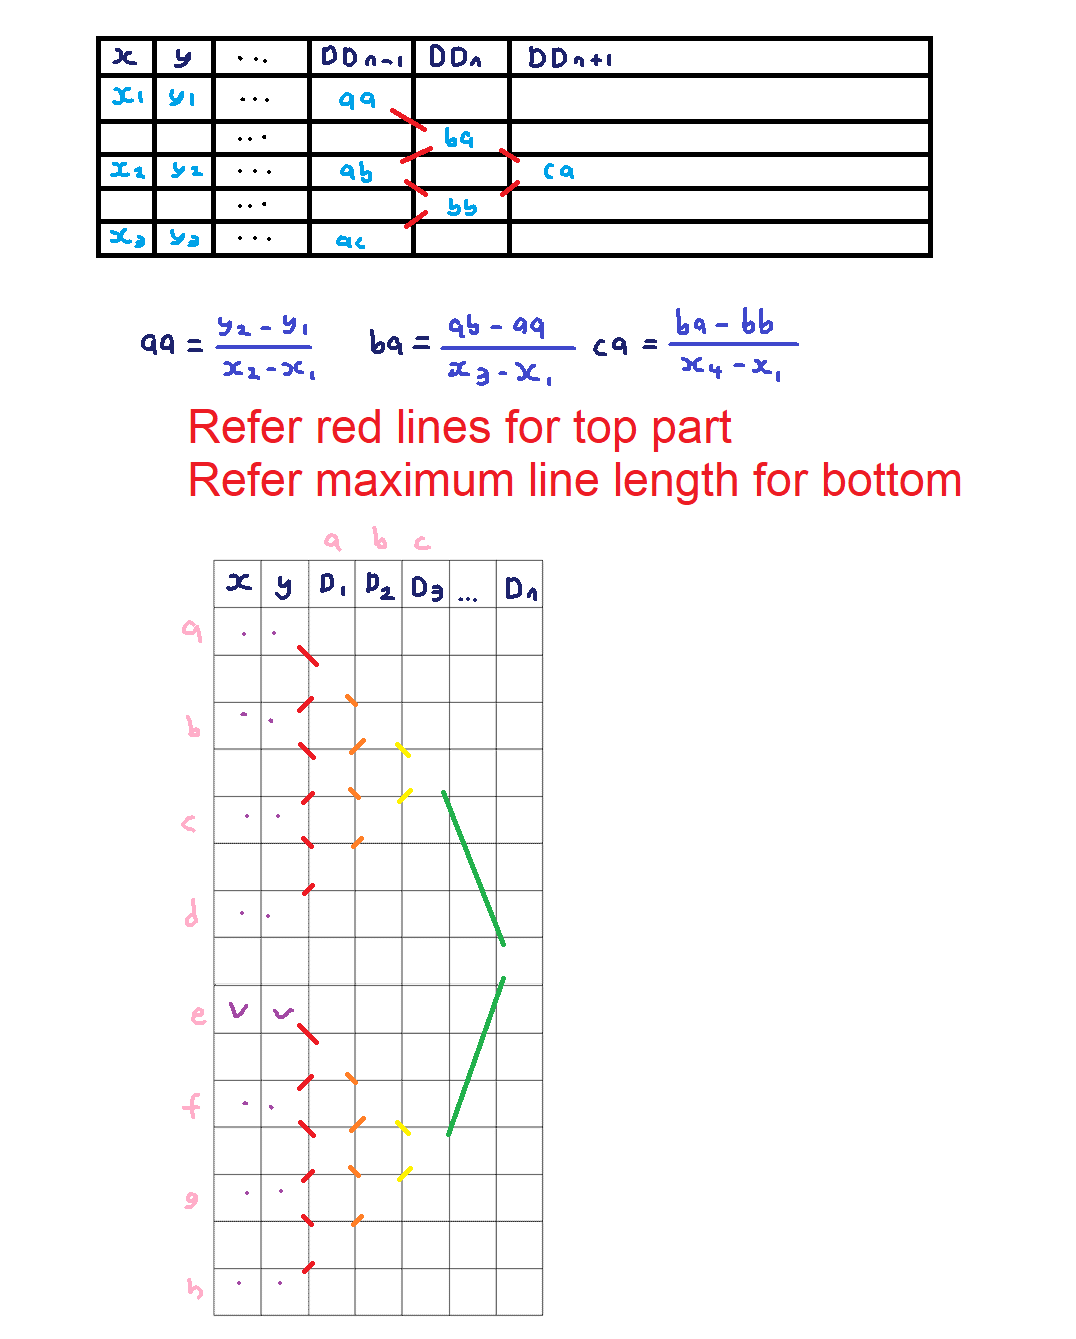 x y ... DDn-1 DDn DDn+1
x1 y1 ... aa
... ba
x2 y2 ... ab ca
... bb
x3 y3 ... ac
aa = y2 - y1 / x2 - x1 ba = ab - aa / x3 - x1 ca = ba - bb / x4 - x1
Refer red lines for top part
Refer maximum line length for bottom
a b c
x y D1 D2 D3 ... Dn
a
b
c
d
e
f
g
h